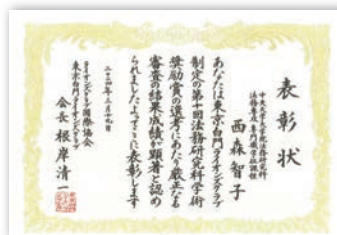 表彰状
中央大学大学院法務研究科
法務専攻専門職学位課程
西森智子
あなたは東京白門ライオンズクラブ
制定の第十回法務研究科学術
奨励賞の選考にあたり厳正なる
審査の結果成績が顕著と認め
られましたよってここに表彰します
二〇一四年三月十九日
ライオンズクラブ国際協会
東京白門ライオンズクラブ
会長 根岸清一